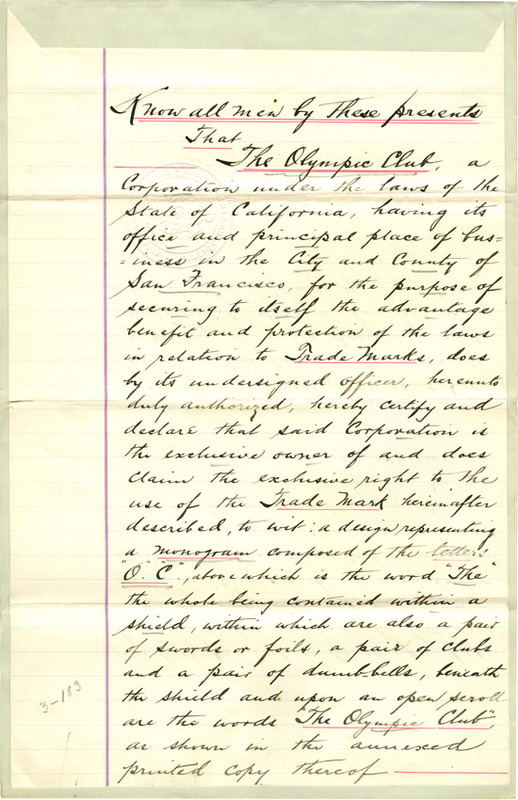 Know all men by these presents
That
The Olympic Club, a
Corporation under the laws of the
State of California, having its
office and principal place of bus-
-iness in the City and County of
San Francisco, for the purpose of
securing to itself the advantage
benefit and protection of the laws
in relation to Trade Marks, does
by its undersigned officer, hereunto
duly authorized, hereby certify and
declare that said Corporation is
the exclusive owner of and does
claim the exclusive right to the
use of the Trade Mark hereinafter
described, to wit: a design representing
a monogram composed of the letters
"O." "C.", above which is the word "The"
the whole being contained within a
shield, within which are also a pair
of swords or foils, a pair of clubs
and a pair of dumb-bells, beneath
the shield and upon an open scroll
are the words "The Olympic Club",
as shown in the annexed
printed copy thereof
3-183